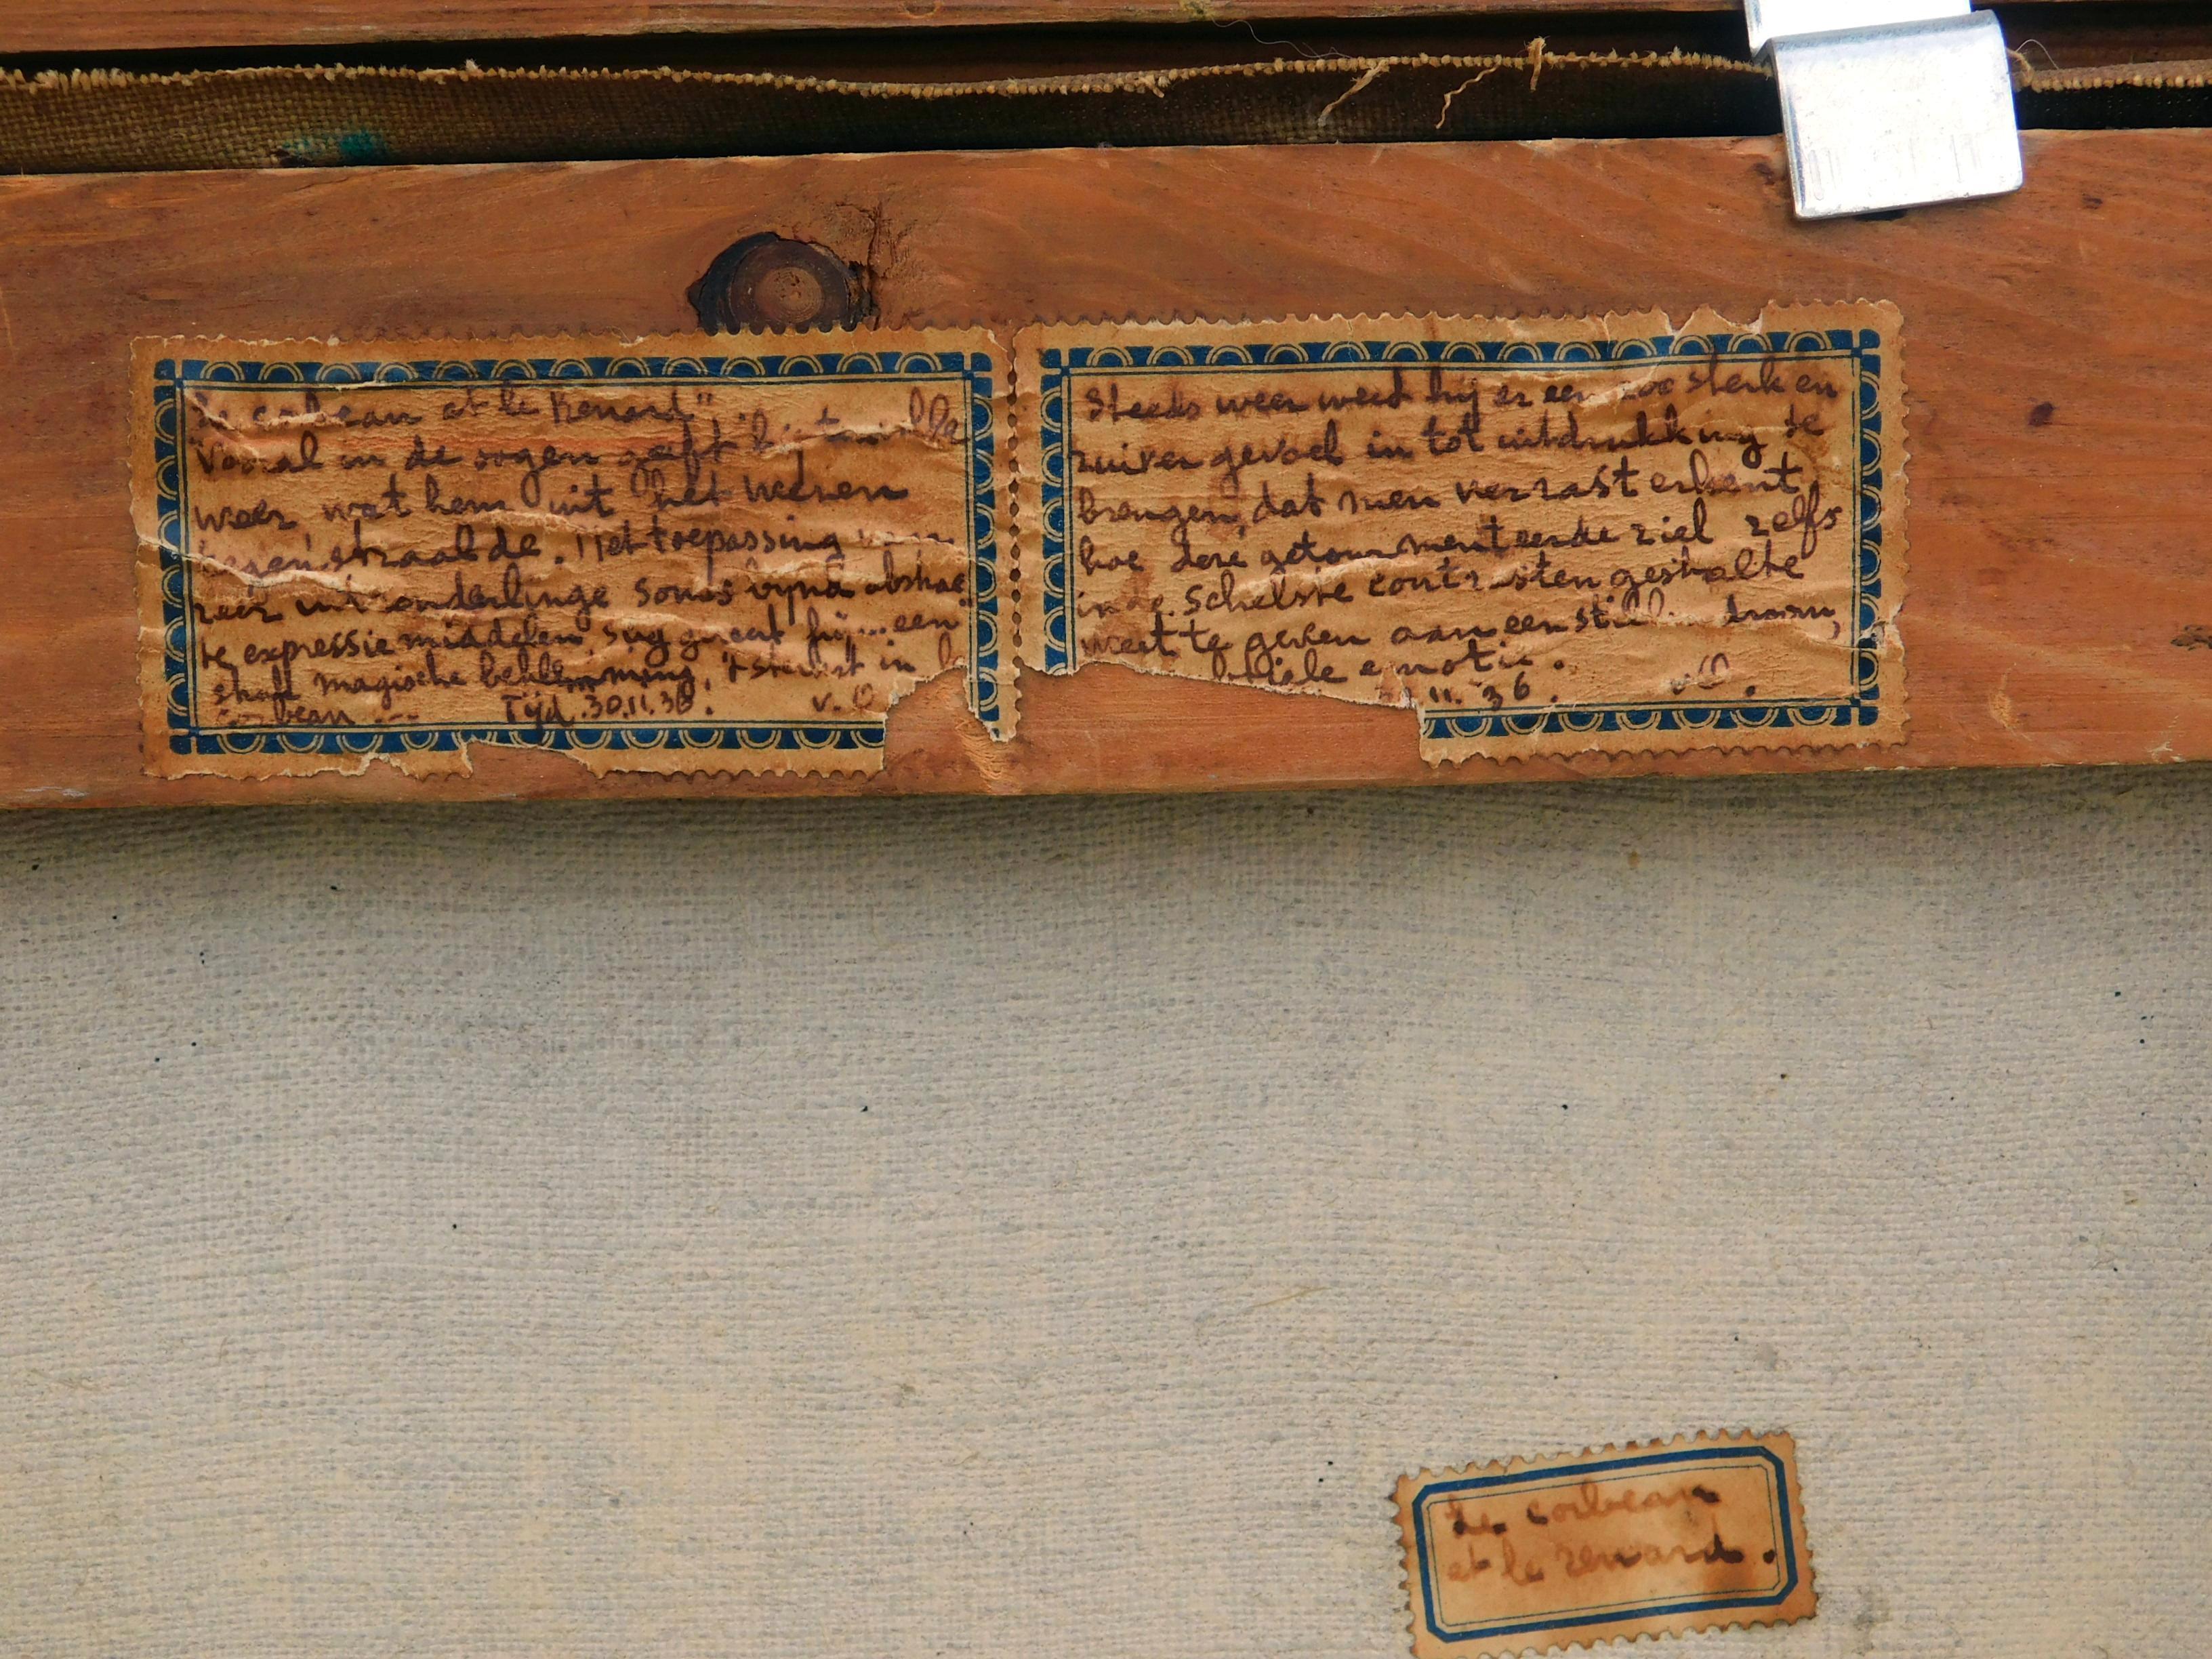 Le corbeau et le Renard"
Vooral in de oogen geeft hij
weer wat hem uit het wezen
tegen straalde. Met toepassing van
zeer uitzonderlinge soms bijna abstrac
te expressie middelen suggereert hij... een
magische beklemming, 't sterkst in
corbeau ... Tijd. 30.11.36. v. O
Steeds weer weet hij er een zoo sterk en
zuiver gevoel in tot uitdrukking te
brengen, dat men verrast erkent,
hoe deze getourmenteerde ziel zelfs
in de schelste contrasten gestalte
weet te geven aan een droom,
emotie.
11. 36. v.O.
Le corbeau
et le renard.